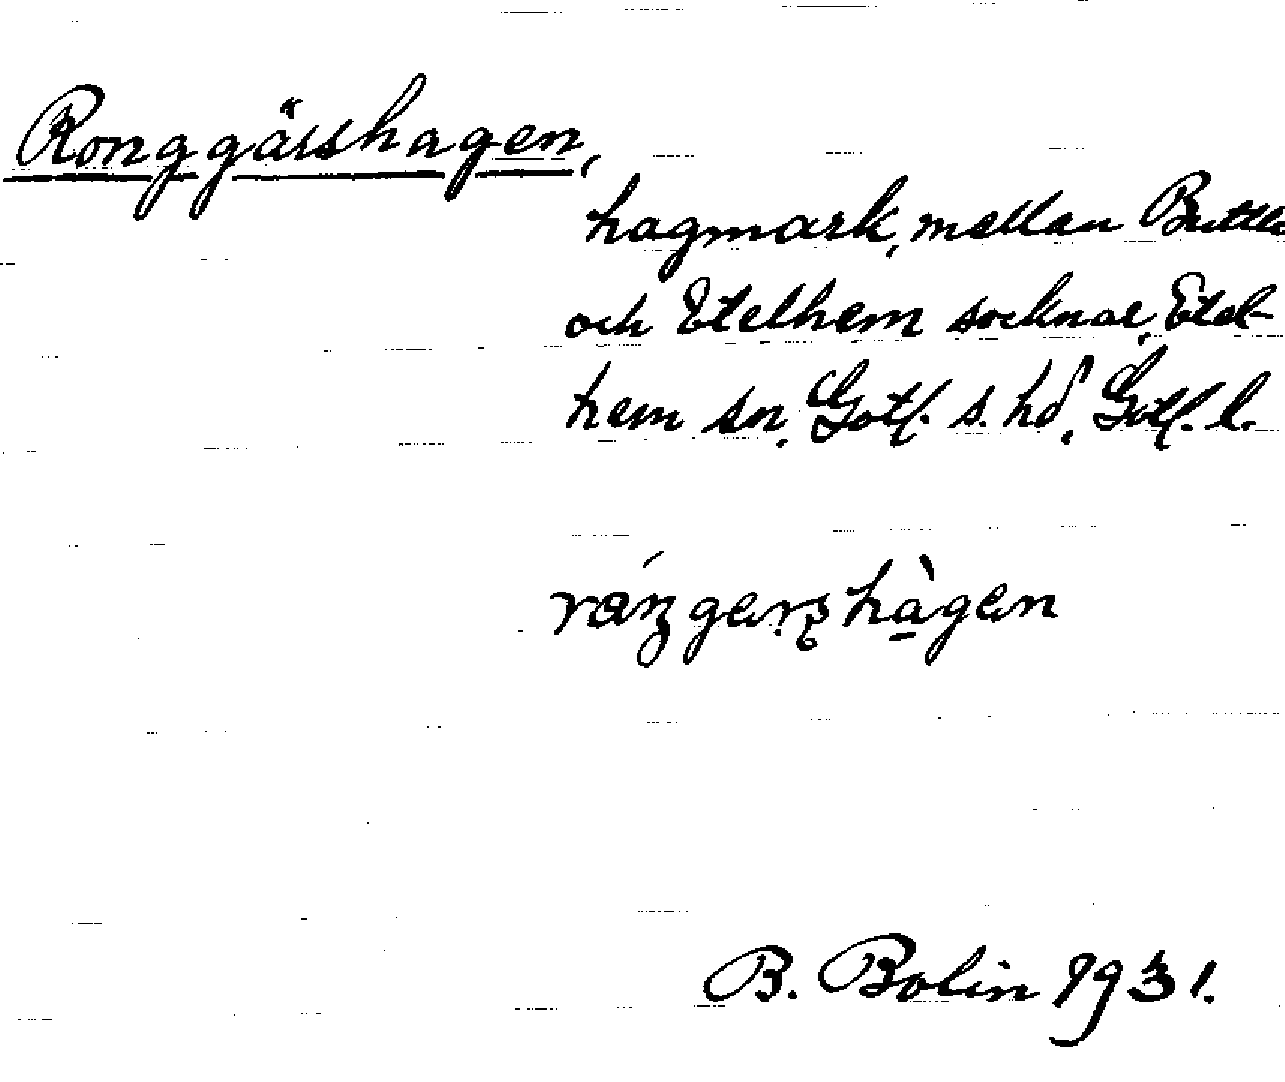 Ronggärshagen,
hagmark, mellan Buttle
och Etelhem socknar, Etel-
hem sn, Gotl. s. hd, Gotl. l.
B. Bolin 1931.